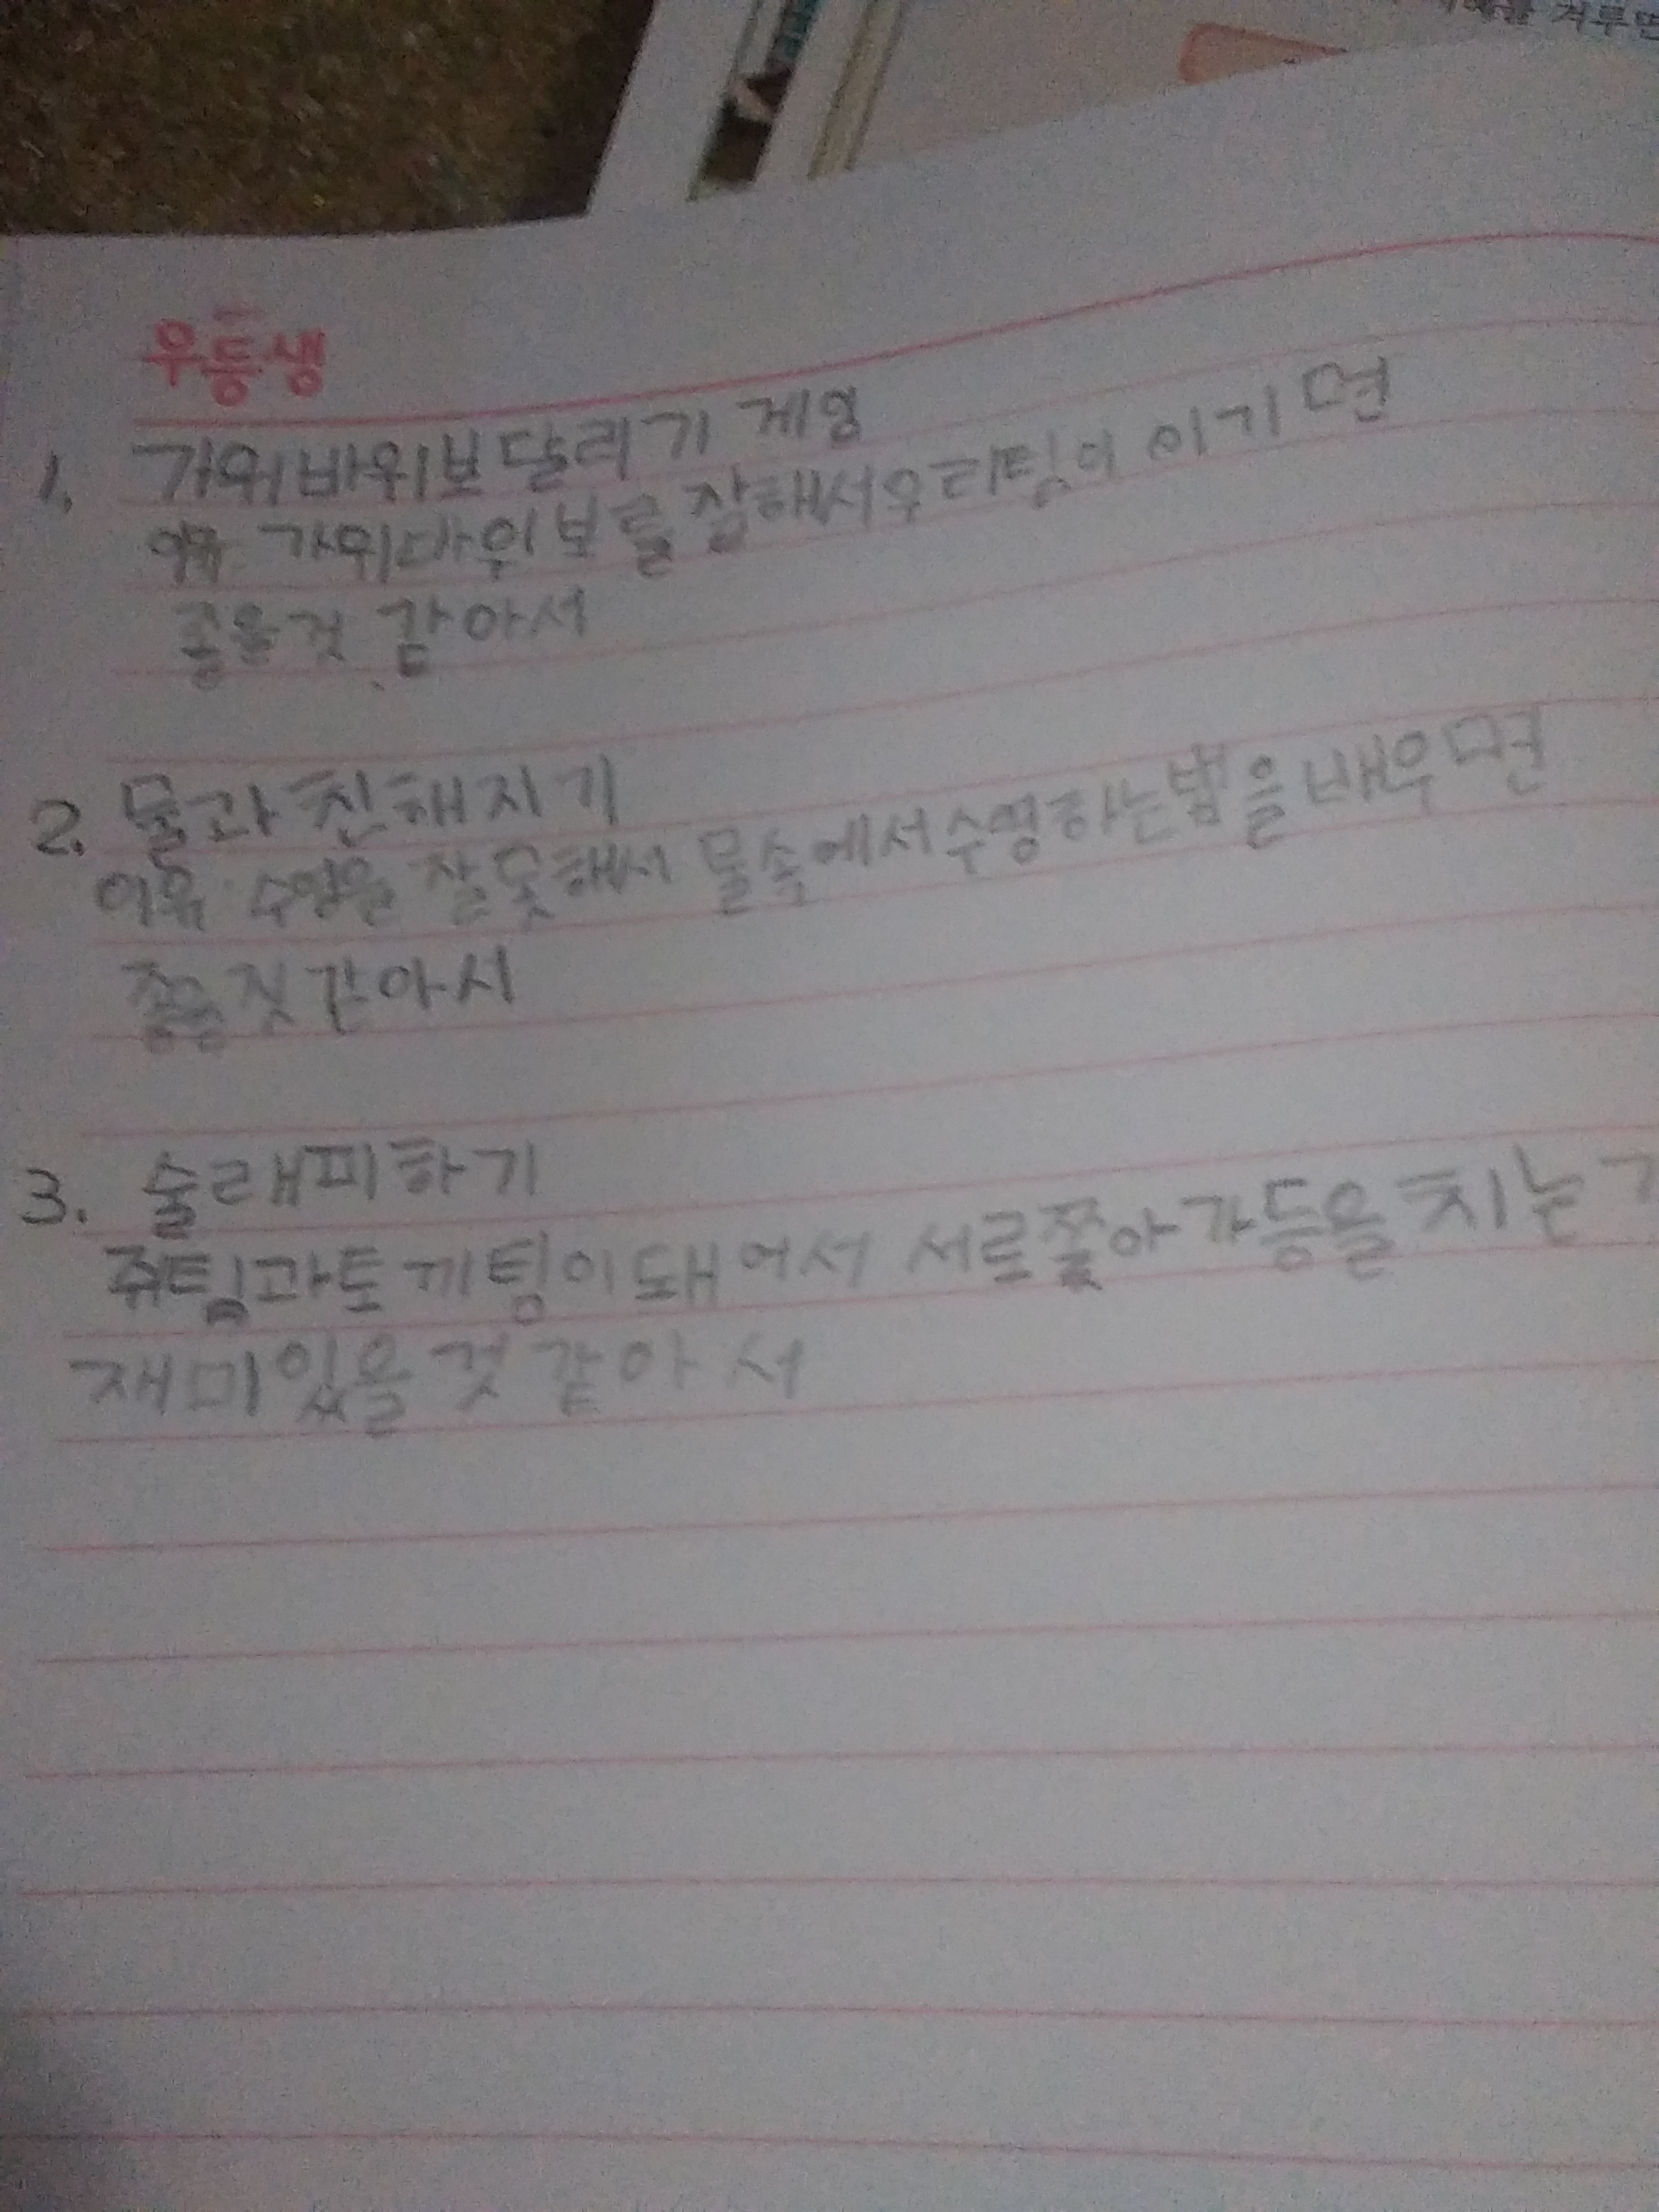 겨루면
우등생
1. 가위바위보달리기 게임
이유 가위바위보를 잘해서우리팀이 이기면
좋을것 같아서
2. 물과친해지기
이유 수영을 잘못해서 물속에서수영하는법을배우면
좋을것같아서
3. 술래피하기
쥐팀과토끼팀이돼어서 서로쫓아가등을치는
재미있을것같아서